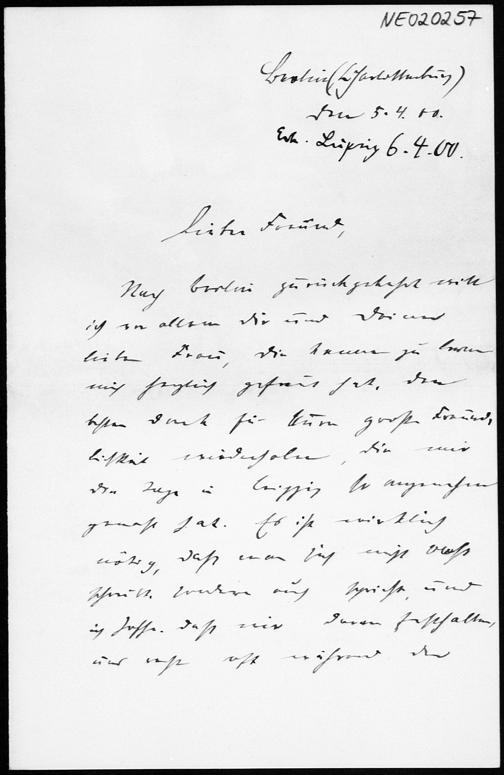 NE020257
Berlin (Charlottenburg)
den 5.4.00.
Erh. Leipzig 6.4.00.
Lieber Freund,
Nach Berlin zurückgekehrt will
ich vor allem Dir und Deiner
lieben Frau, die kennen zu lernen
mich herzlich gefreut hat, den
besten Dank für Eure große Freund-
lichkeit wiederholen, die mir
die Tage in Leipzig so angenehm
gemacht hat. Es ist wirklich
nötig, daß man sich nicht
schreibt sondern auch spricht, und
ich hoffe, daß wir daran festhalten,
uns recht oft während der